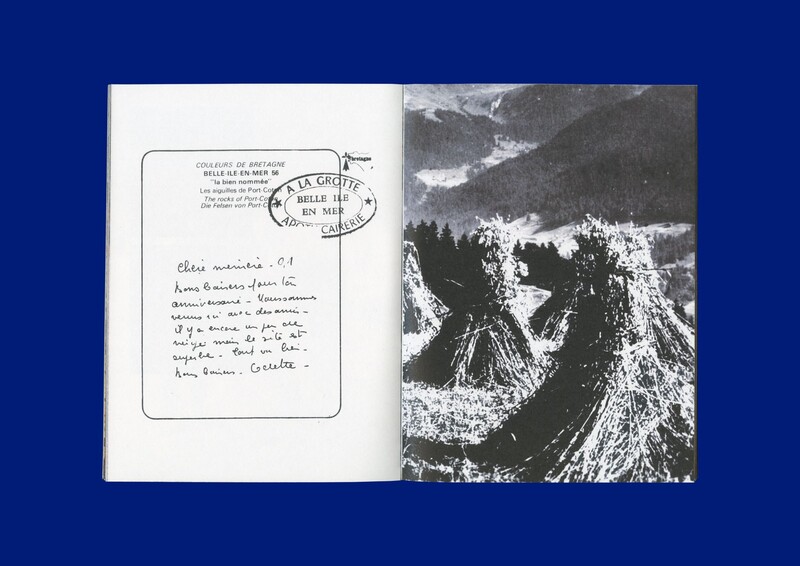 COULEURS DE BRETAGNE
BELLE-ILE-EN-MER 56
"la bien nommée"
Les aiguilles de Port-Coton
The rocks of Port-Coton
Die Felsen von Port-Coton
bretagne
A LA GROTTE
BELLE ILE
EN MER
CAIRERIE
Chère
bons baisers pour ton
anniversaire - Nous sommes
venus ici avec des amis -
il y a encore un peu de
neige mais le site est
superbe - Tout va bien
bons baisers - Colette -